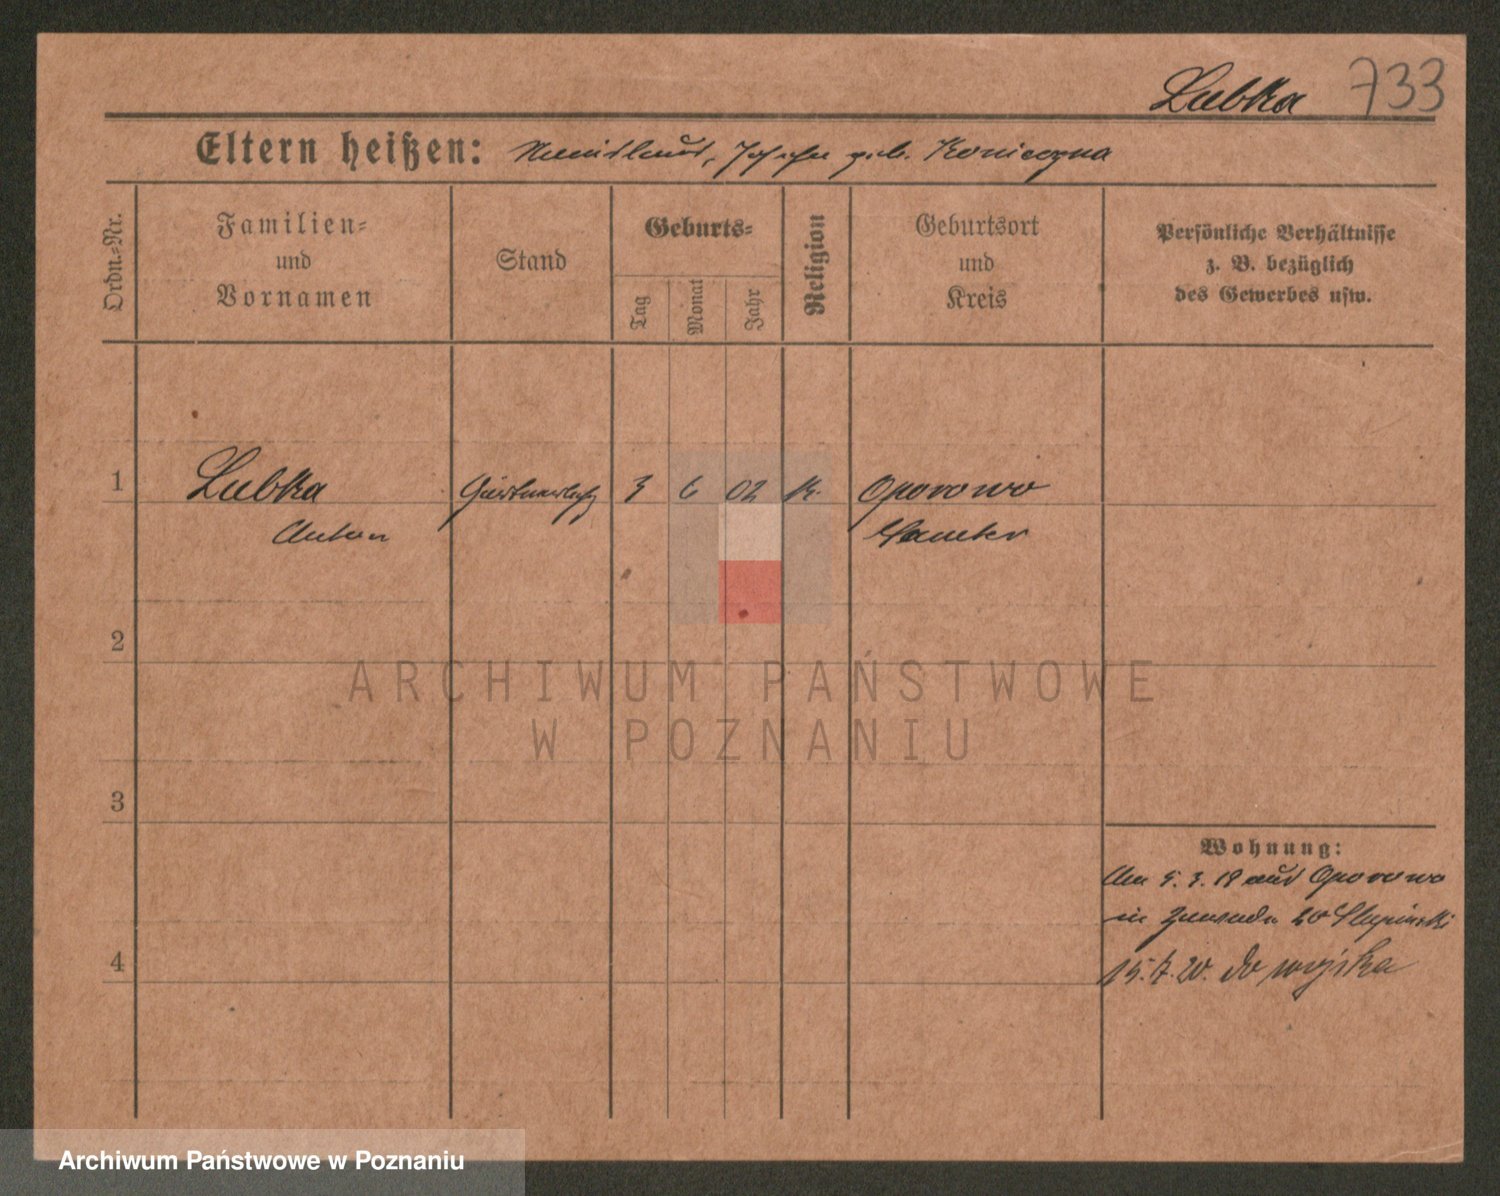 Lubka 733
Eltern heißen: Stanislaus, Josefa geb. Konieczna
Ordn.=Nr.
Familien=
und
Vornamen
Stand
Geburts=
Tag
Monat
Jahr
Religion
Geburtsort
und
Kreis
Persönliche Verhältnisse
z. B. bezüglich
des Gewerbes usw.
1 Lubka 3 6 02 K. Oporowo
Anton Samter
2
3
4
Wohnung:
Am 5. 3. 18 aus Oporowo
in
15. 7. 20. do wojska
ARCHIWUM PAŃSTWOWE
W POZNANIU
Archiwum Państwowe w Poznaniu